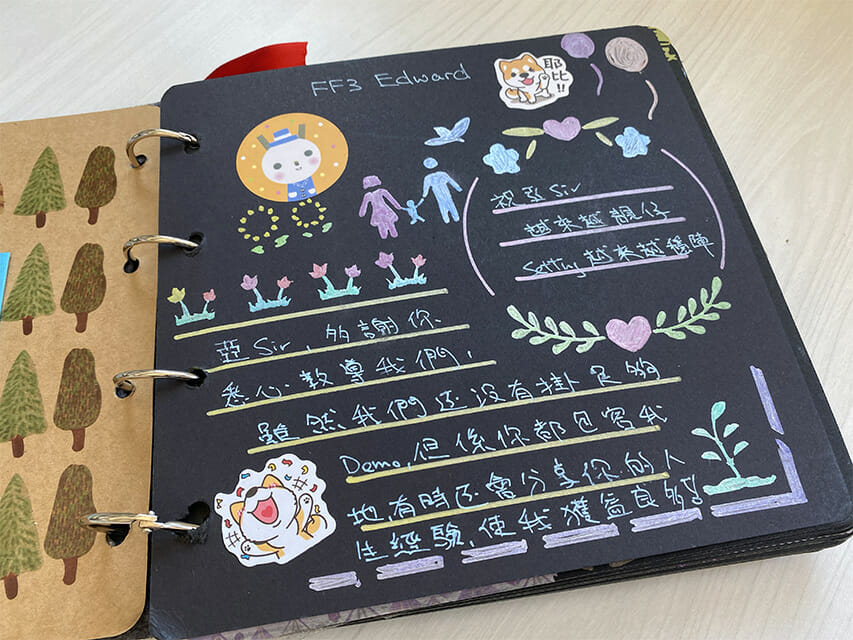 FF3 Edward
耶比!!
祝亞Sir
越來越靚仔
Setty越來越穩陣
亞Sir, 多謝你
悉心教導我們,
雖然我們还沒有掛足夠
Demo, 但係你都包容我
地, 有時还會分享你的人
生經驗, 使我獲益良多